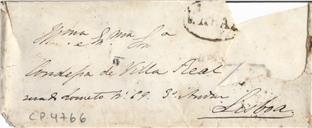 V. REAL
Illma e Exma Sra
Condessa de Villa Real
rua do Loreto Nº 69. 3º Andar
Lisboa
CP4766